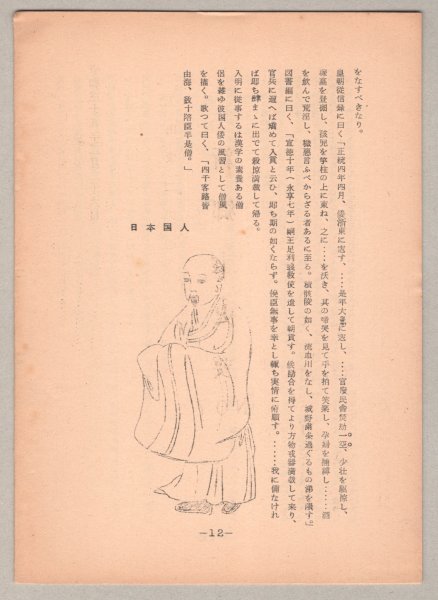 をなすべきなり。
皇朝従信録に曰く「正統四年四月、倭浙東に寇す、‥‥是年大嵩に寇し、‥‥官庾民舎焚劫一空、少壮を駆掠し、
塚墓を発掘し、孩児を竿柱の上に束ね、之に‥‥を沃ぎ、其の啼哭を見て手を拍て笑楽し、孕婦を捕縛し‥‥酒
を飲んで荒淫し、穢悪言ふべからざる者あるに至る。積骸陵の如く、流血川をなし、城野蕭条過ぐるもの涕を隕す」。
図書編に曰く、「宣徳十年(永享七年)嗣王足利義教使を遣して朝貢す。倭勘合を得てより方物戎器満載して来り、
官兵に遇へば矯めて入貢と云ひ、即ち期の如くならず。倭臣無事を幸とし輒ち実情に俯順す。‥‥我に備なけれ
ば即ち肆まゝに出でて殺掠満載して帰る。
入明に従事するは漢学の素養ある僧
侶を雑ゆ彼国人倭の風習として僧風
を描く。歌つて曰く、「四千客路皆
由海、数十陪臣半是僧。」
日本国人
−12−